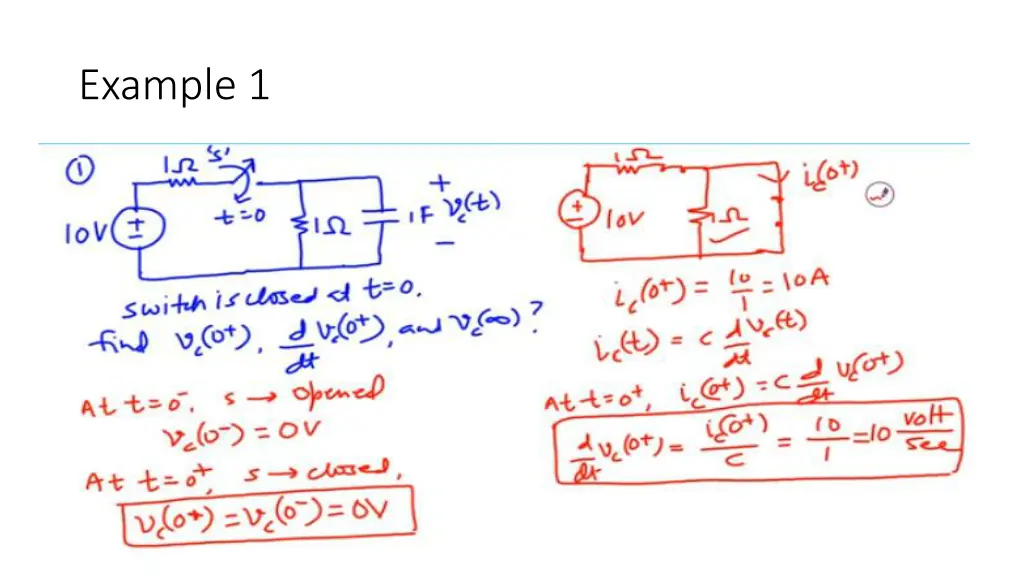 Example 1
①
1Ω 's'
10V
t=0
1Ω
1F
+
v_c(t)
−
switch is closed at t=0.
find v_c(0⁺), d/dt v_c(0⁺), and v_c(∞)?
At t=0⁻, s → opened
v_c(0⁻) = 0V
At t=0⁺, s → closed,
v_c(0⁺) = v_c(0⁻) = 0V
1Ω
10V
1Ω
i_c(0⁺)
i_c(0⁺) = 10/1 = 10A
i_c(t) = c d v_c(t)/dt
At t=0⁺, i_c(0⁺) = c d/dt v_c(0⁺)
d/dt v_c(0⁺) = i_c(0⁺)/c = 10/1 = 10 volt/sec